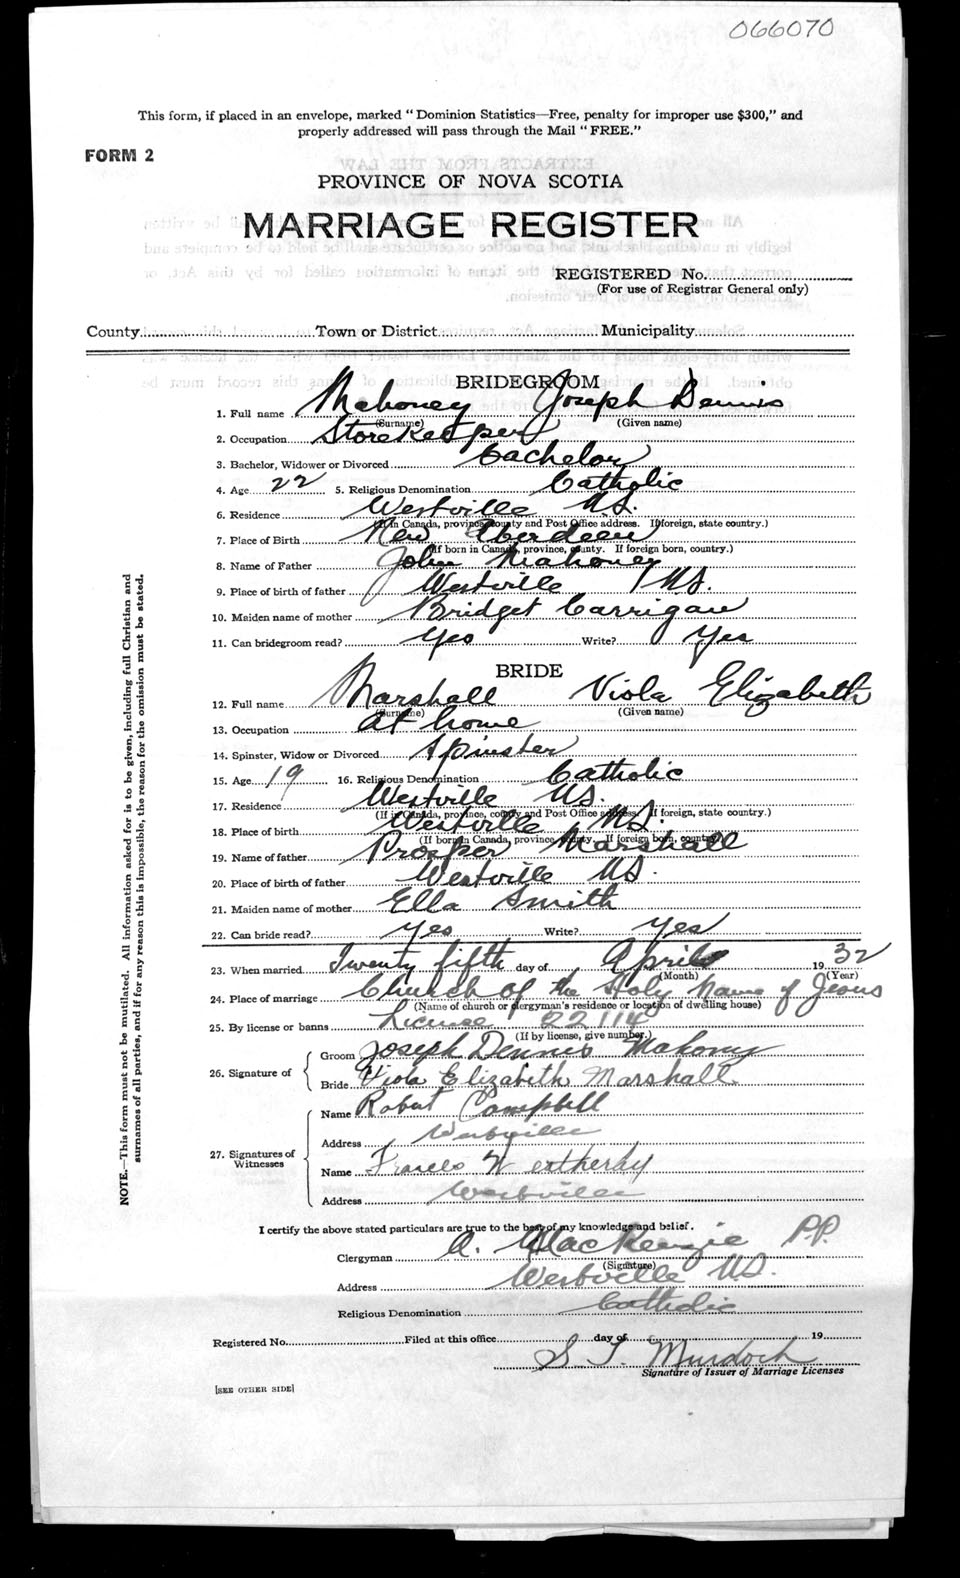 066070
This form, if placed in an envelope, marked "Dominion Statistics—Free, penalty for improper use $300," and
properly addressed will pass through the Mail "FREE."
FORM 2
PROVINCE OF NOVA SCOTIA
MARRIAGE REGISTER
REGISTERED No.
(For use of Registrar General only)
County Town or District Municipality
BRIDEGROOM
1. Full name Mahoney Joseph Dennis
(Surname) (Given name)
2. Occupation Storekeeper
3. Bachelor, Widower or Divorced Bachelor
4. Age 22 5. Religious Denomination Catholic
6. Residence Westville N.S.
(If in Canada, province, county and Post Office address. If foreign, state country.)
7. Place of Birth New Aberdeen
(If born in Canada, province, county. If foreign born, country.)
8. Name of Father John Mahoney
9. Place of birth of father Westville N.S.
10. Maiden name of mother Bridget Carrigan
11. Can bridegroom read? Yes Write? Yes
BRIDE
12. Full name Marshall Viola Elizabeth
(Surname) (Given name)
13. Occupation at home
14. Spinster, Widow or Divorced Spinster
15. Age 19 16. Religious Denomination Catholic
17. Residence Westville N.S.
(If in Canada, province, county and Post Office address. If foreign, state country.)
18. Place of birth Westville N.S.
(If born in Canada, province, county. If foreign born, country.)
19. Name of father Prosper Marshall
20. Place of birth of father Westville N.S.
21. Maiden name of mother Ella Smith
22. Can bride read? Yes Write? Yes
23. When married Twenty fifth day of April 1932
(Month) (Year)
24. Place of marriage Church of the Holy Name of Jesus
(Name of church or clergyman's residence or location of dwelling house)
25. By license or banns License 22114
(If by license, give number.)
26. Signature of
Groom Joseph Dennis Mahony
Bride Viola Elizabeth Marshall.
27. Signatures of Witnesses
Name Robert Campbell
Address Westville
Name Frances
Address Westville
I certify the above stated particulars are true to the best of my knowledge and belief.
Clergyman A. MacKenzie P.P.
(Signature)
Address Westville N.S.
Religious Denomination Catholic
Registered No. Filed at this office day of 19
S. T. Murdoch
Signature of Issuer of Marriage Licenses
[SEE OTHER SIDE]
NOTE.—This form must not be mutilated. All information asked for is to be given, including full Christian and
surnames of all parties, and if for any reason this is impossible, the reason for the omission must be stated.